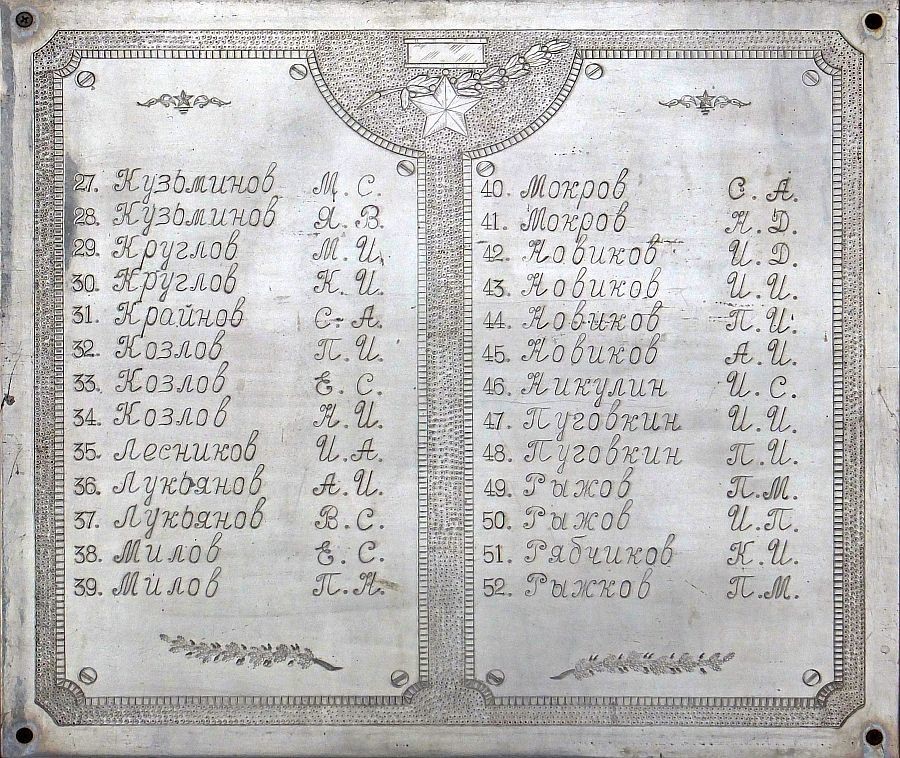 27. Кузьминов М. С.
28. Кузьминов Я. В.
29. Круглов М. И.
30. Круглов К. И.
31. Крайнов С. А.
32. Козлов П. И.
33. Козлов Е. С.
34. Козлов Н. И.
35. Лесников И. А.
36. Лукьянов А. И.
37. Лукьянов В. С.
38. Милов Е. С.
39. Милов П. Н.
40. Мокров С. А.
41. Мокров Н. Д.
42. Новиков И. Д.
43. Новиков И. И.
44. Новиков П. И.
45. Новиков А. И.
46. Никулин И. С.
47. Пуговкин И. И.
48. Пуговкин П. И.
49. Рыжов П. М.
50. Рыжов И. П.
51. Рябчиков К. И.
52. Рыжков П. М.